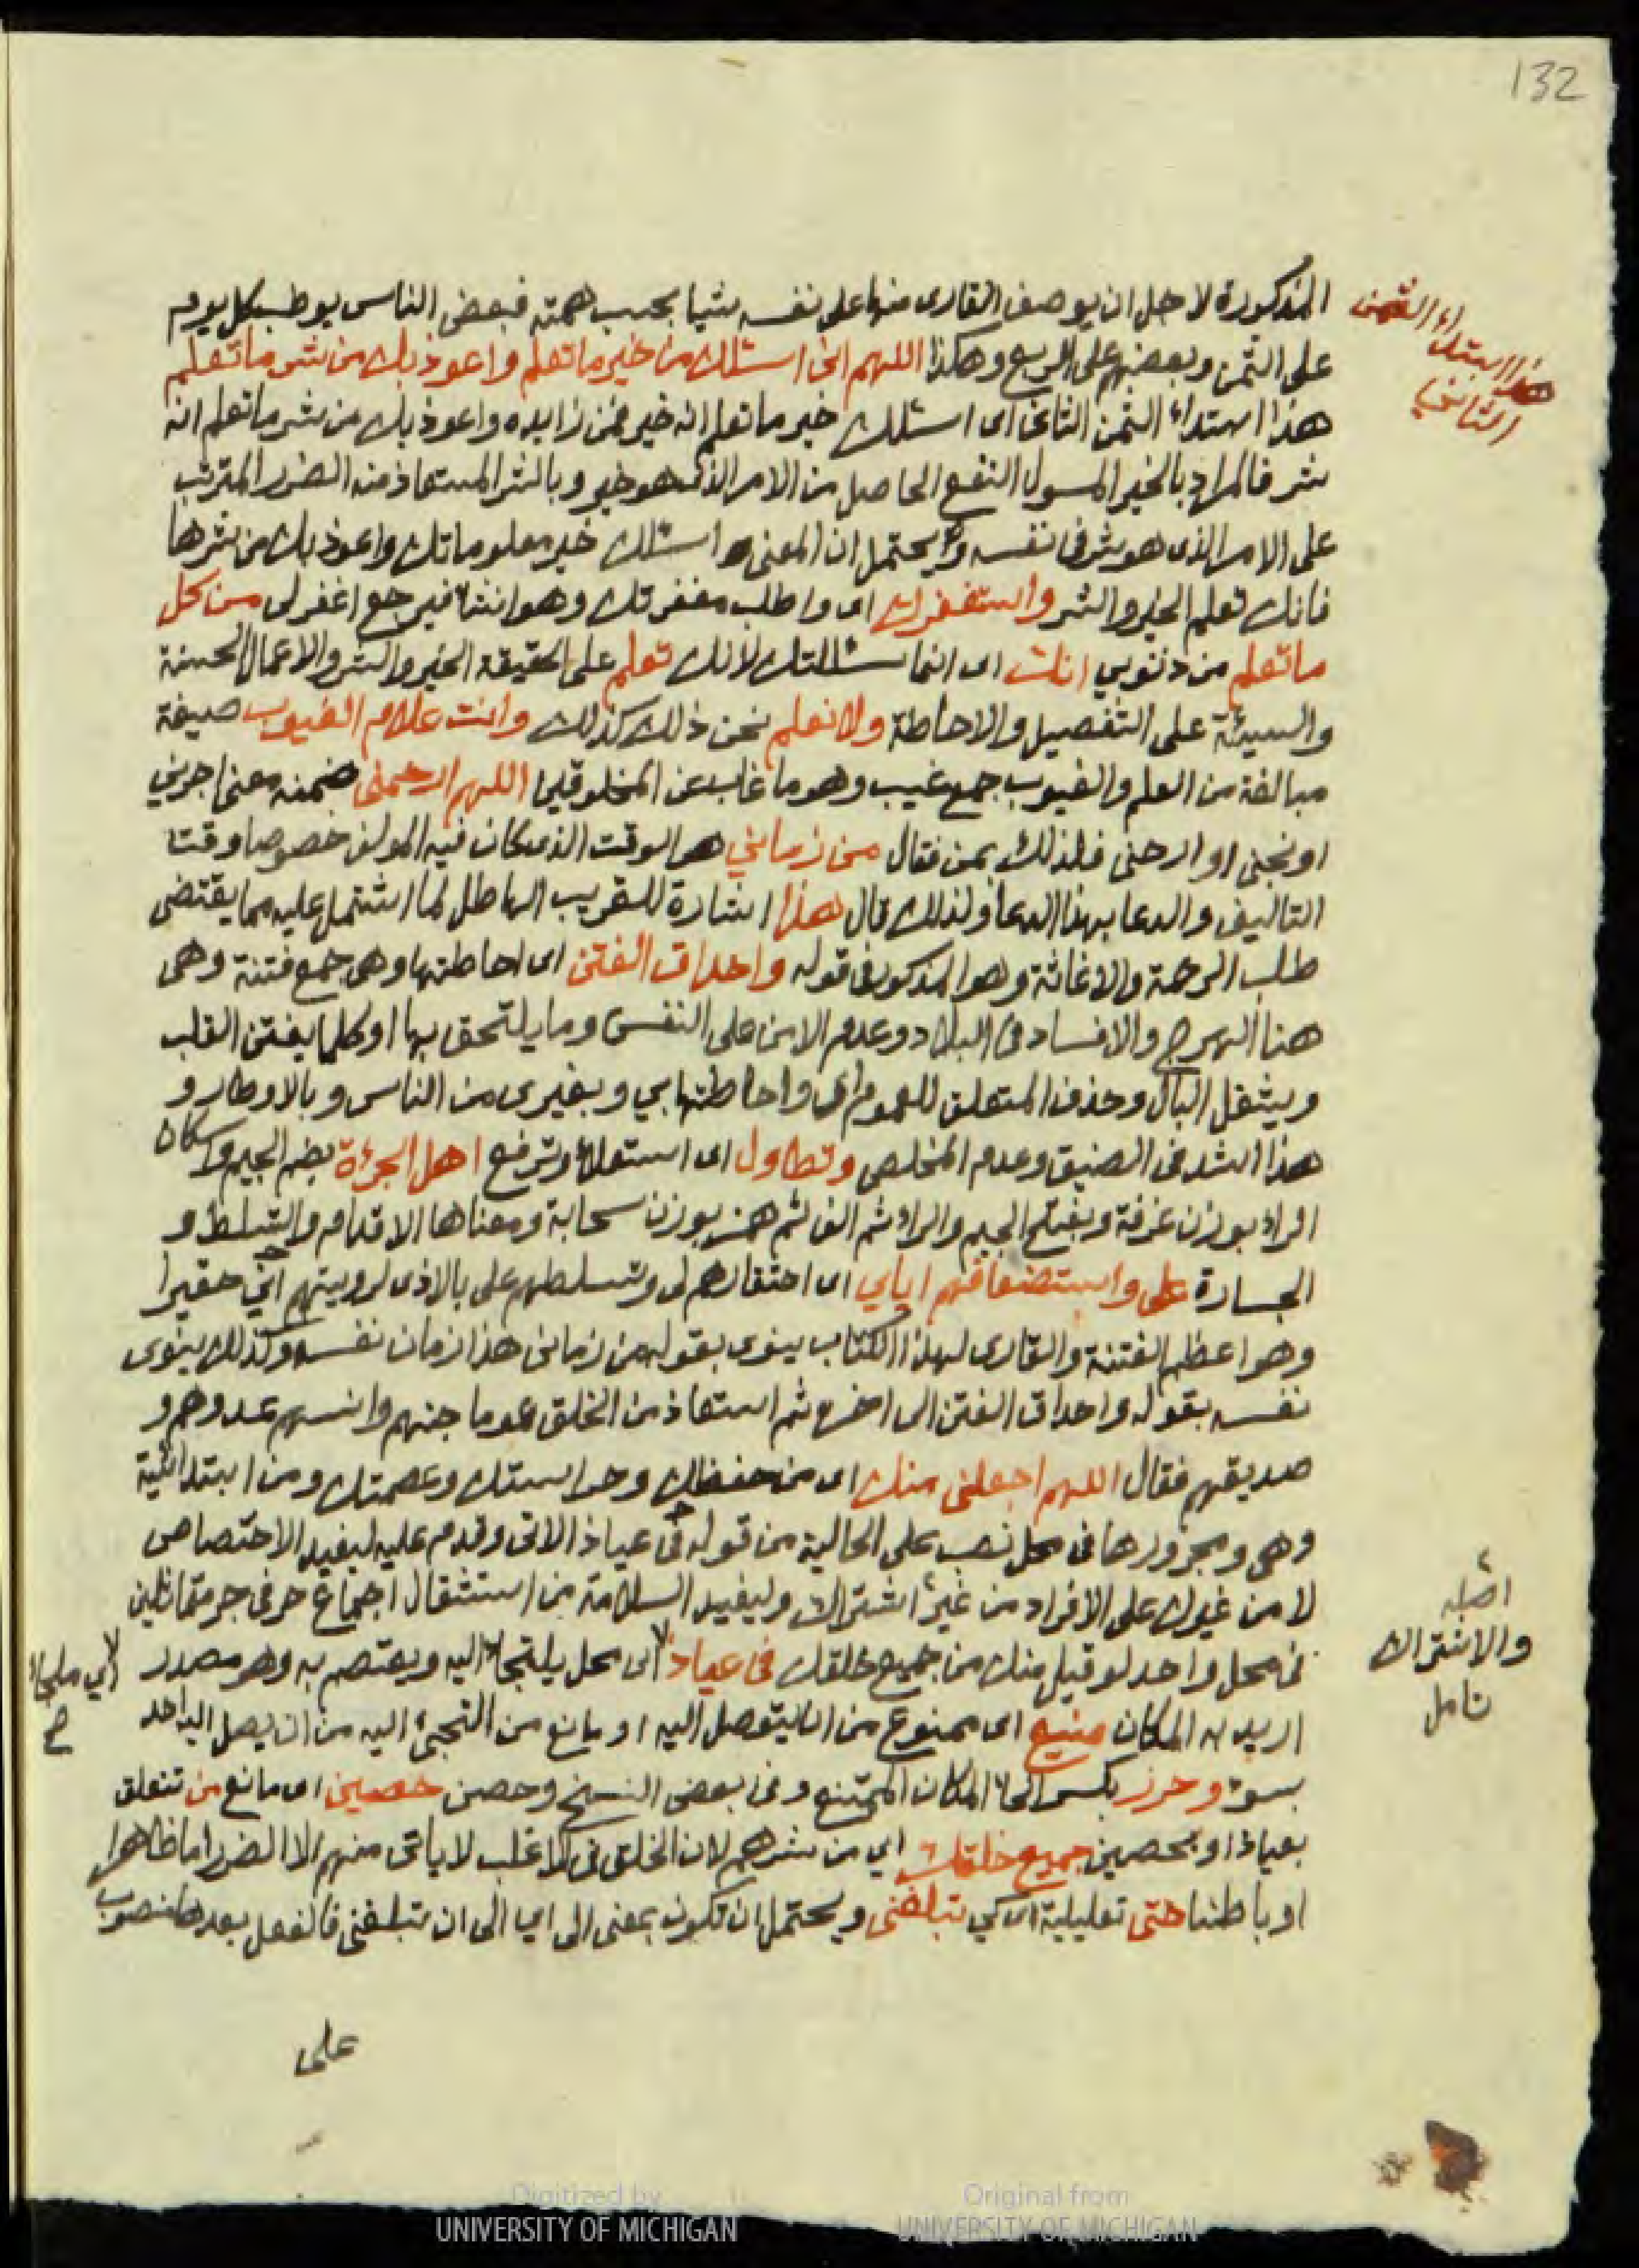 132
هذا ابتداء الثمن
الثاني
المذكورة لاجل ان يوظف القارى منها على نفسه شيا بحسب همته فبعض الناس يوظب كل يوم
على الثمن وبعضهم على الربع وهكذا اللهم انى اسئلك من خير ما تعلم واعوذ بك من شر ما تعلم
هذا ابتداء الثمن الثانى اى اسئلك خير ما تعلم انه خير فمن زايده واعوذ بك من شر ما تعلم انه
شر فالمراد بالخير المسول النفع الحاصل من الامر الذى هو خير وبالشر المستعاذ منه الضرر المترتب
على الامر الذى هو شر فى نفسه ويحتمل ان المعنى اسئلك خير معلوماتك واعوذ بك من شرها
فانك تعلم الخير والشر واستغفرك اى واطلب مغفرتك وهو انشا فيرجع اغفر لى من كل
ما تعلم من ذنوبي انك اى انما سئالتك لانك تعلم على الحقيقة الخير والشر والاعمال الحسنة
والسيئة على التفصيل والاحاطة ولا نعلم نحن ذلك كذلك وانت علام الغيوب صيغة
مبالغة من العلم والغيوب جمع غيب وهو ما غاب عن المخلوقين اللهم ارحمنى ضمنه معنى اجرني
او نجنى او ارحنى فلذلك بمن فقال من زماني هو الوقت الذى كان فيه المولف خصوصا وقت
التاليف والدعا بهذا الدعا ولذلك قال هذا اشارة للقريب الهاطل لما اشتمل عليه مما يقتضى
طلب الرحمة والاغاثة وهو المذكور فى قوله واحداق الفتن اى احاطتها وهى جمع فتنة وهى
هنا الهرج والافساد فى البلاد وعدم الامن على النفس وما يلتحق بها او كلما يفتن القلب
ويشغل البال وحذف المتعلق للعموم اى واحاطتها بي وبغيرى من الناس وبالاوطار و
هذا اشد فى الضيق وعدم المخلص وتطاول اى استعلاء وترفع اهل الجرءة بضم الجيم واسكان
الراء بوزن غرفة وبفتح الجيم والراء ثم الف ثم همز بوزن سحابة ومعناها الاقدام والتسلط و
الجسارة على واستضعافهم اياي اى احتقارهم لى وتسلطهم على بالاذى لرويتهم اني حقيرا
وهو اعظم الفتنة والقارى لهذا الكتاب ينوى بقوله من زمانى هذا زمان نفسه وكذلك ينوى
نفسه بقوله واحداق الفتن الى اخره ثم استعاذ من الخلق عموما جنهم وانسهم عدوهم و
صديقهم فقال اللهم اجعلنى منك اى من حفظك وحراستك وعصمتك ومن ابتدائية
وهى ومجرورها فى محل نصب على الحالية من قوله فى عياذ الاتى وقدم عليه ليفيد الاختصاص
لا من غيرك على الافراد من غير اشتراك وليفيد السلامة من استثقال اجتماع حرفى جر متماثلين
فى محل واحد لو قيل منك من جميع خلقك فى عياذ اى محل يلتجا اليه ويعتصم به وهو مصدر
اريد به المكان منيع اى ممنوع من ان يتوصل اليه او مانع من التجئ اليه من ان يصل اليه احد
بسوء وحرز بكسر الحاء المكان الممتنع وفى بعض النسخ وحصن حصين اى مانع من تتعلق
بعياذ او بحصين جميع خلقك اي من شرهم لان الخلق فى الاغلب لا ياتى منهم الا الضرر اما ظاهرا
او باطنا حتى تعليلية اى كي تبلغنى ويحتمل ان تكون بمعنى الى اي الى ان تبلغنى فالفعل بعدها منصوب
اصله
والاشتراك
تامل
اي ملجا
ح
على
Digitized by
UNIVERSITY OF MICHIGAN
Original from
UNIVERSITY OF MICHIGAN